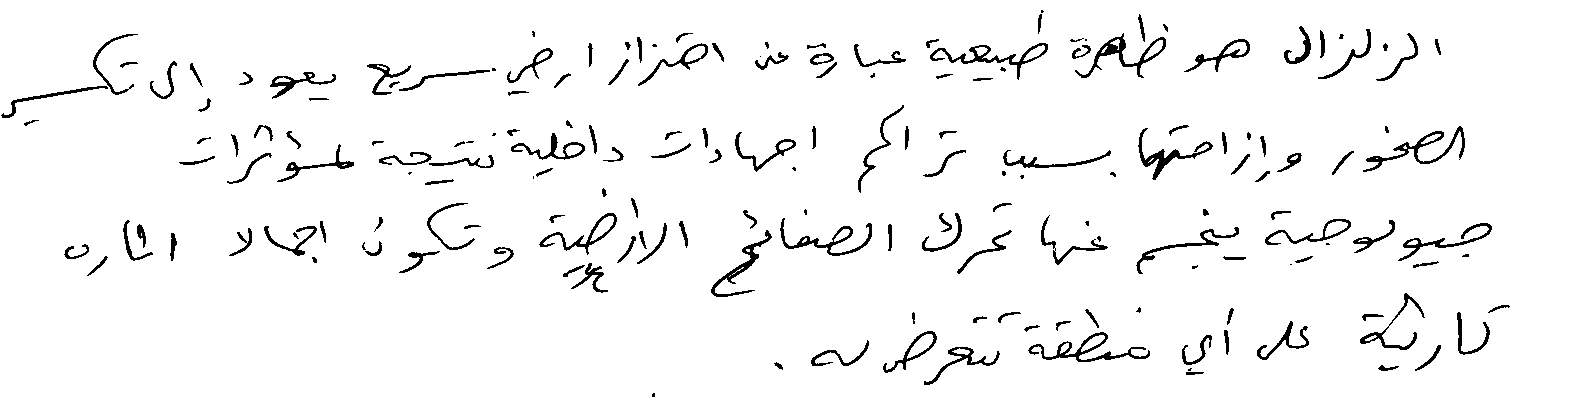 الزلزال هو ظاهرة طبيعية عبارة عن اهتزاز ارضي سريع يعود إلى تكسير
الصخور وإزاحتها بسبب تراكم اجهادات داخلية نتيجة لمؤثرات
جيولوجية ينجم عنها تحرك الصفائح الارضية وتكون اجمالا اثاره
كارثية على أي منطقة تتعرض له .